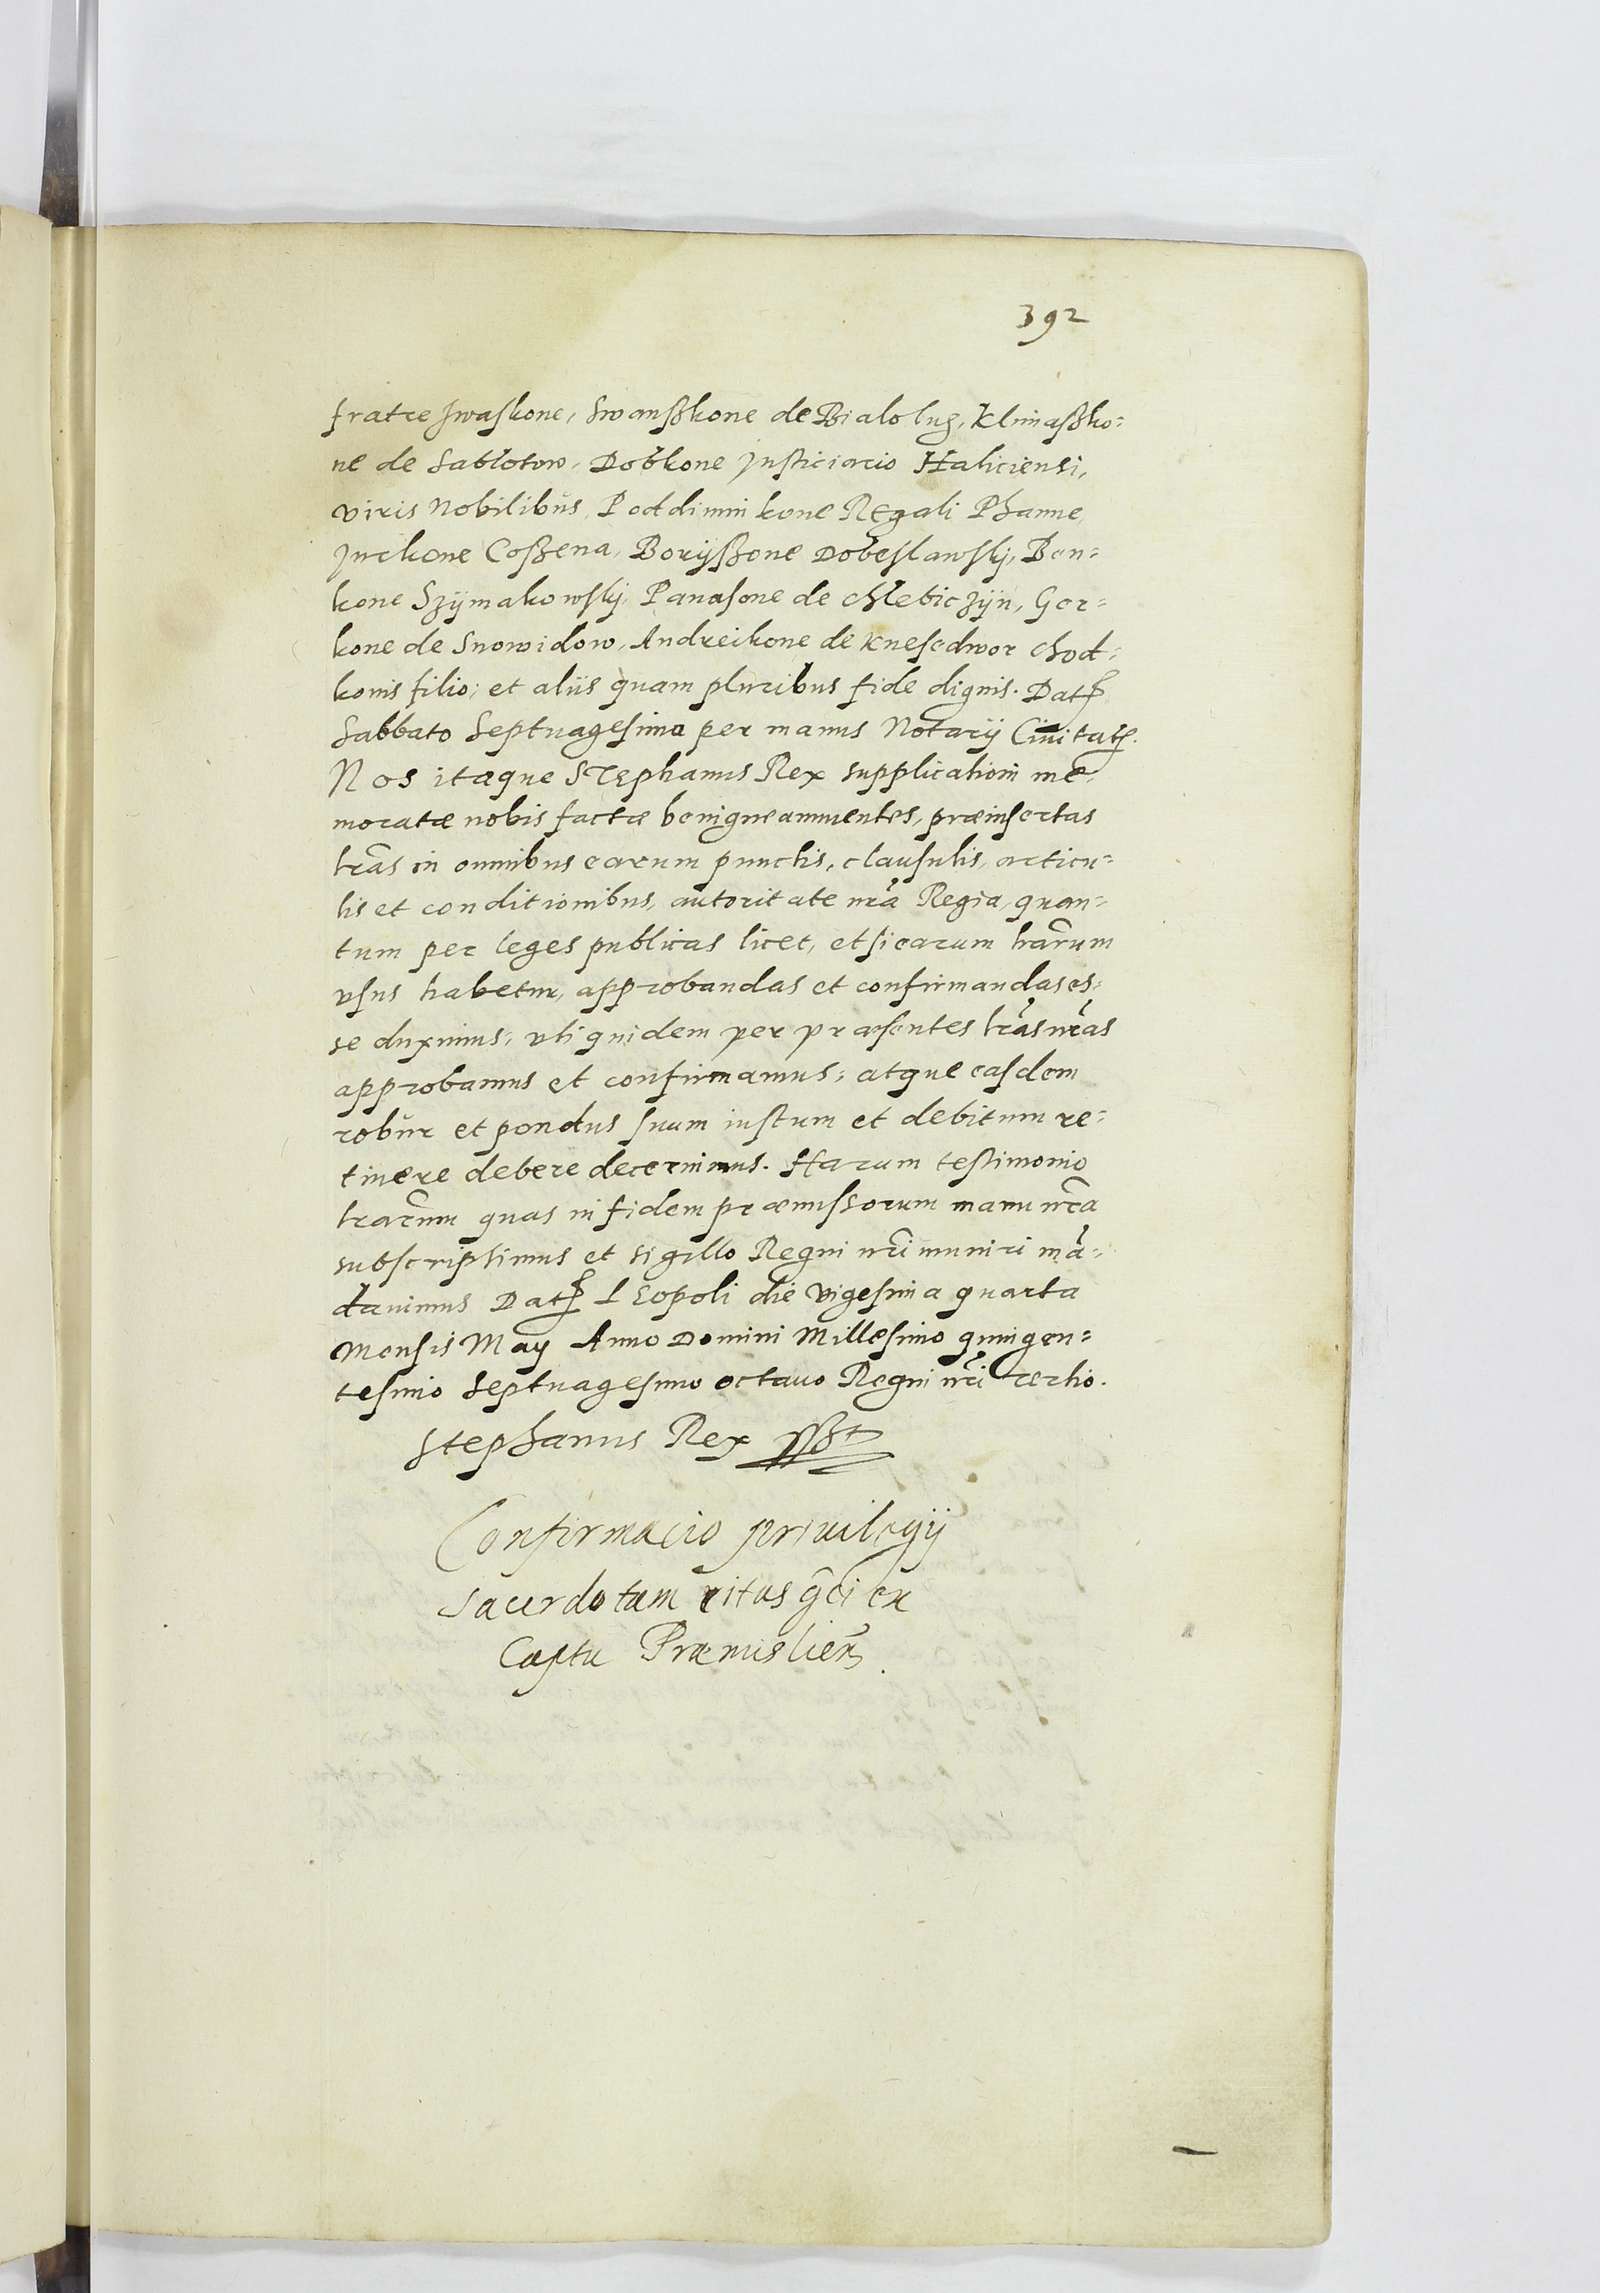 392
fratre Jwaskone, Swanßkone de Bialolug, Klimaßko=
ne de Sablotow, Dobkone Justiciario Haliciensi,
viris Nobilibus Poddimnikone Regali Phanne,
Jurkone Coßena, Boryßone Dobeslawskj, Ben=
kone Szÿmakowskj, Panasone de Chlebiczÿn, Ger=
kone de Snowidow, Andreikone de Knesedwor Chod=
konis filio; et aliis quam pluribus fide dignis. Dat̃
Sabbato Septuagesima per manus Notarÿ Ciuitat̃.
Nos itaque Stephanus Rex supplicationi me=
moratæ nobis factæ benigne annuentes, præinsertas
lr̃as in omnibus earum punctis, clausulis, articu=
lis et conditionibus, autoritate nr̃a Regia, quan=
tum per leges publicas licet, et si earum lrãrum
vsus habetur, approbandas et confirmandas es=
se duximus, vti quidem per præsentes lr̃as nr̃as
approbamus et confirmamus, atque easdem
robŭr et pondus suum iustum et debitum re=
tinere debere decernimus. Harum testimonio
lrãrum quas in fidem præmissorum manu nr̃a
subscripsimus et sigillo Regni nr̃i muniri mã=
dauimus Dat̃ Leopoli die Vigesima quarta
Mensis Maÿ Anno Domini Millesimo quingen=
tesimo Septuagesimo octauo Regni nr̃i tertio.
Stephanus Rex ßßt
Confirmacio priuilegÿ
Sacerdotum ritus gc̃i ex
Captu Præmislien̄